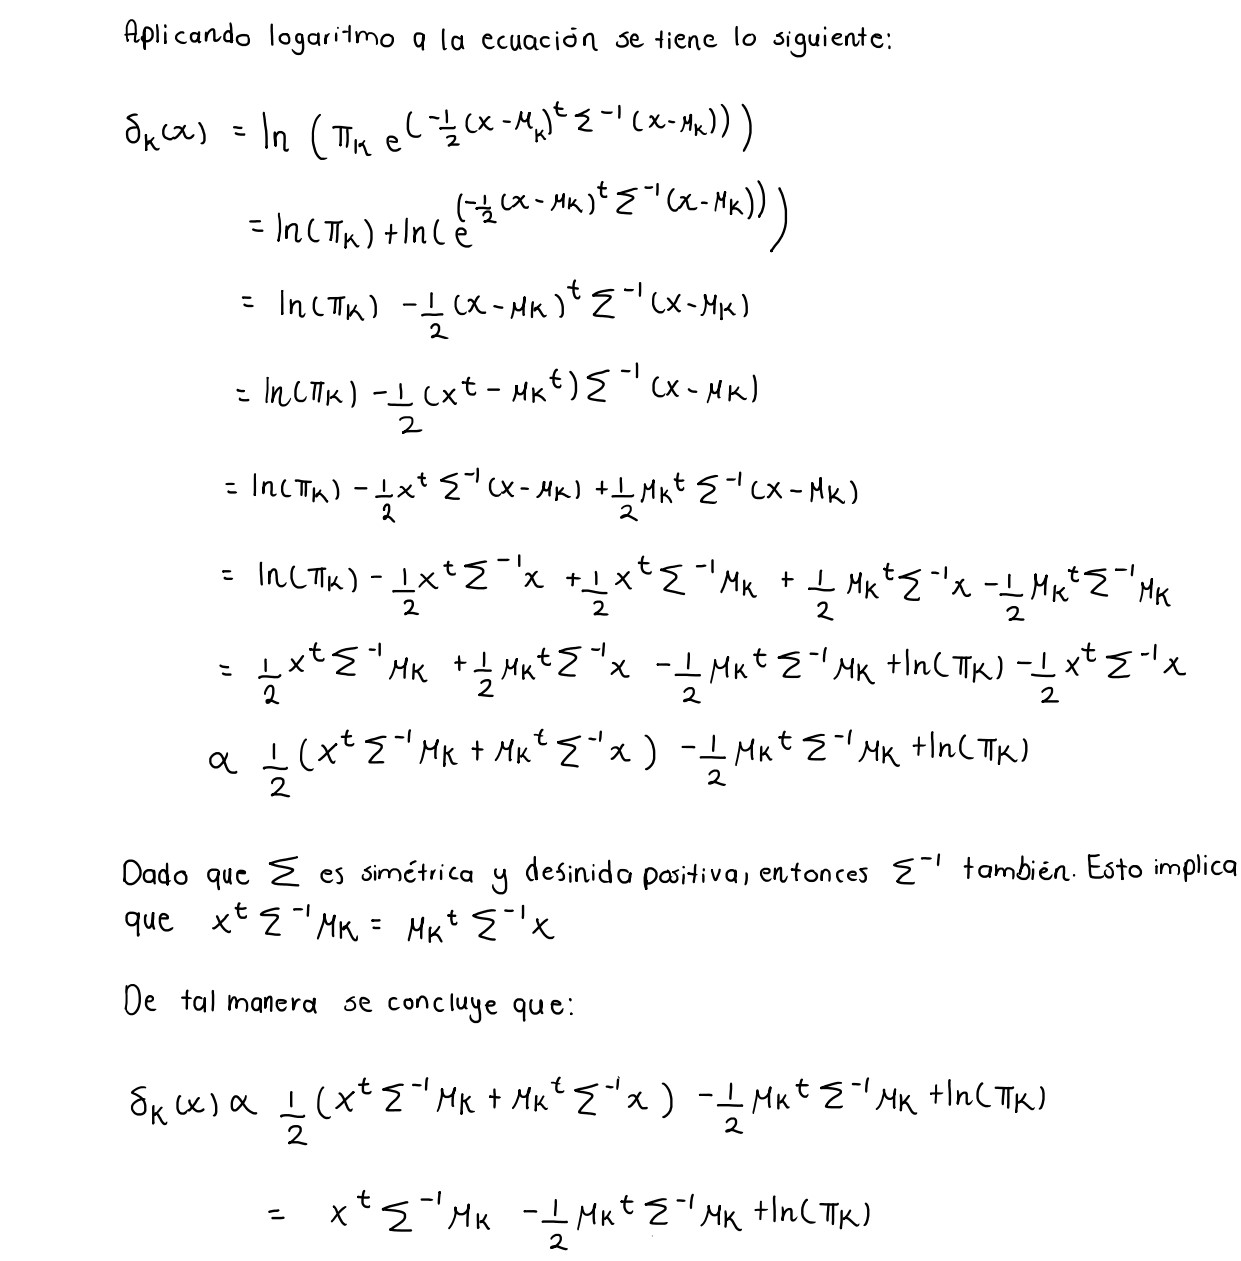 Aplicando logaritmo a la ecuación se tiene lo siguiente:
δ_K(x) = ln (π_K e^(-1/2 (x-μ_K)^t Σ^-1 (x-μ_K)))
= ln(π_K) + ln(e^(-1/2 (x-μ_K)^t Σ^-1 (x-μ_K)))
= ln(π_K) - 1/2 (x-μ_K)^t Σ^-1 (x-μ_K)
= ln(π_K) - 1/2 (x^t - μ_K^t) Σ^-1 (x-μ_K)
= ln(π_K) - 1/2 x^t Σ^-1 (x-μ_K) + 1/2 μ_K^t Σ^-1 (x-μ_K)
= ln(π_K) - 1/2 x^t Σ^-1 x + 1/2 x^t Σ^-1 μ_K + 1/2 μ_K^t Σ^-1 x - 1/2 μ_K^t Σ^-1 μ_K
= 1/2 x^t Σ^-1 μ_K + 1/2 μ_K^t Σ^-1 x - 1/2 μ_K^t Σ^-1 μ_K + ln(π_K) - 1/2 x^t Σ^-1 x
∝ 1/2 (x^t Σ^-1 μ_K + μ_K^t Σ^-1 x) - 1/2 μ_K^t Σ^-1 μ_K + ln(π_K)
Dado que Σ es simétrica y definida positiva, entonces Σ^-1 también. Esto implica
que x^t Σ^-1 μ_K = μ_K^t Σ^-1 x
De tal manera se concluye que:
δ_K(x) ∝ 1/2 (x^t Σ^-1 μ_K + μ_K^t Σ^-1 x) - 1/2 μ_K^t Σ^-1 μ_K + ln(π_K)
= x^t Σ^-1 μ_K - 1/2 μ_K^t Σ^-1 μ_K + ln(π_K)